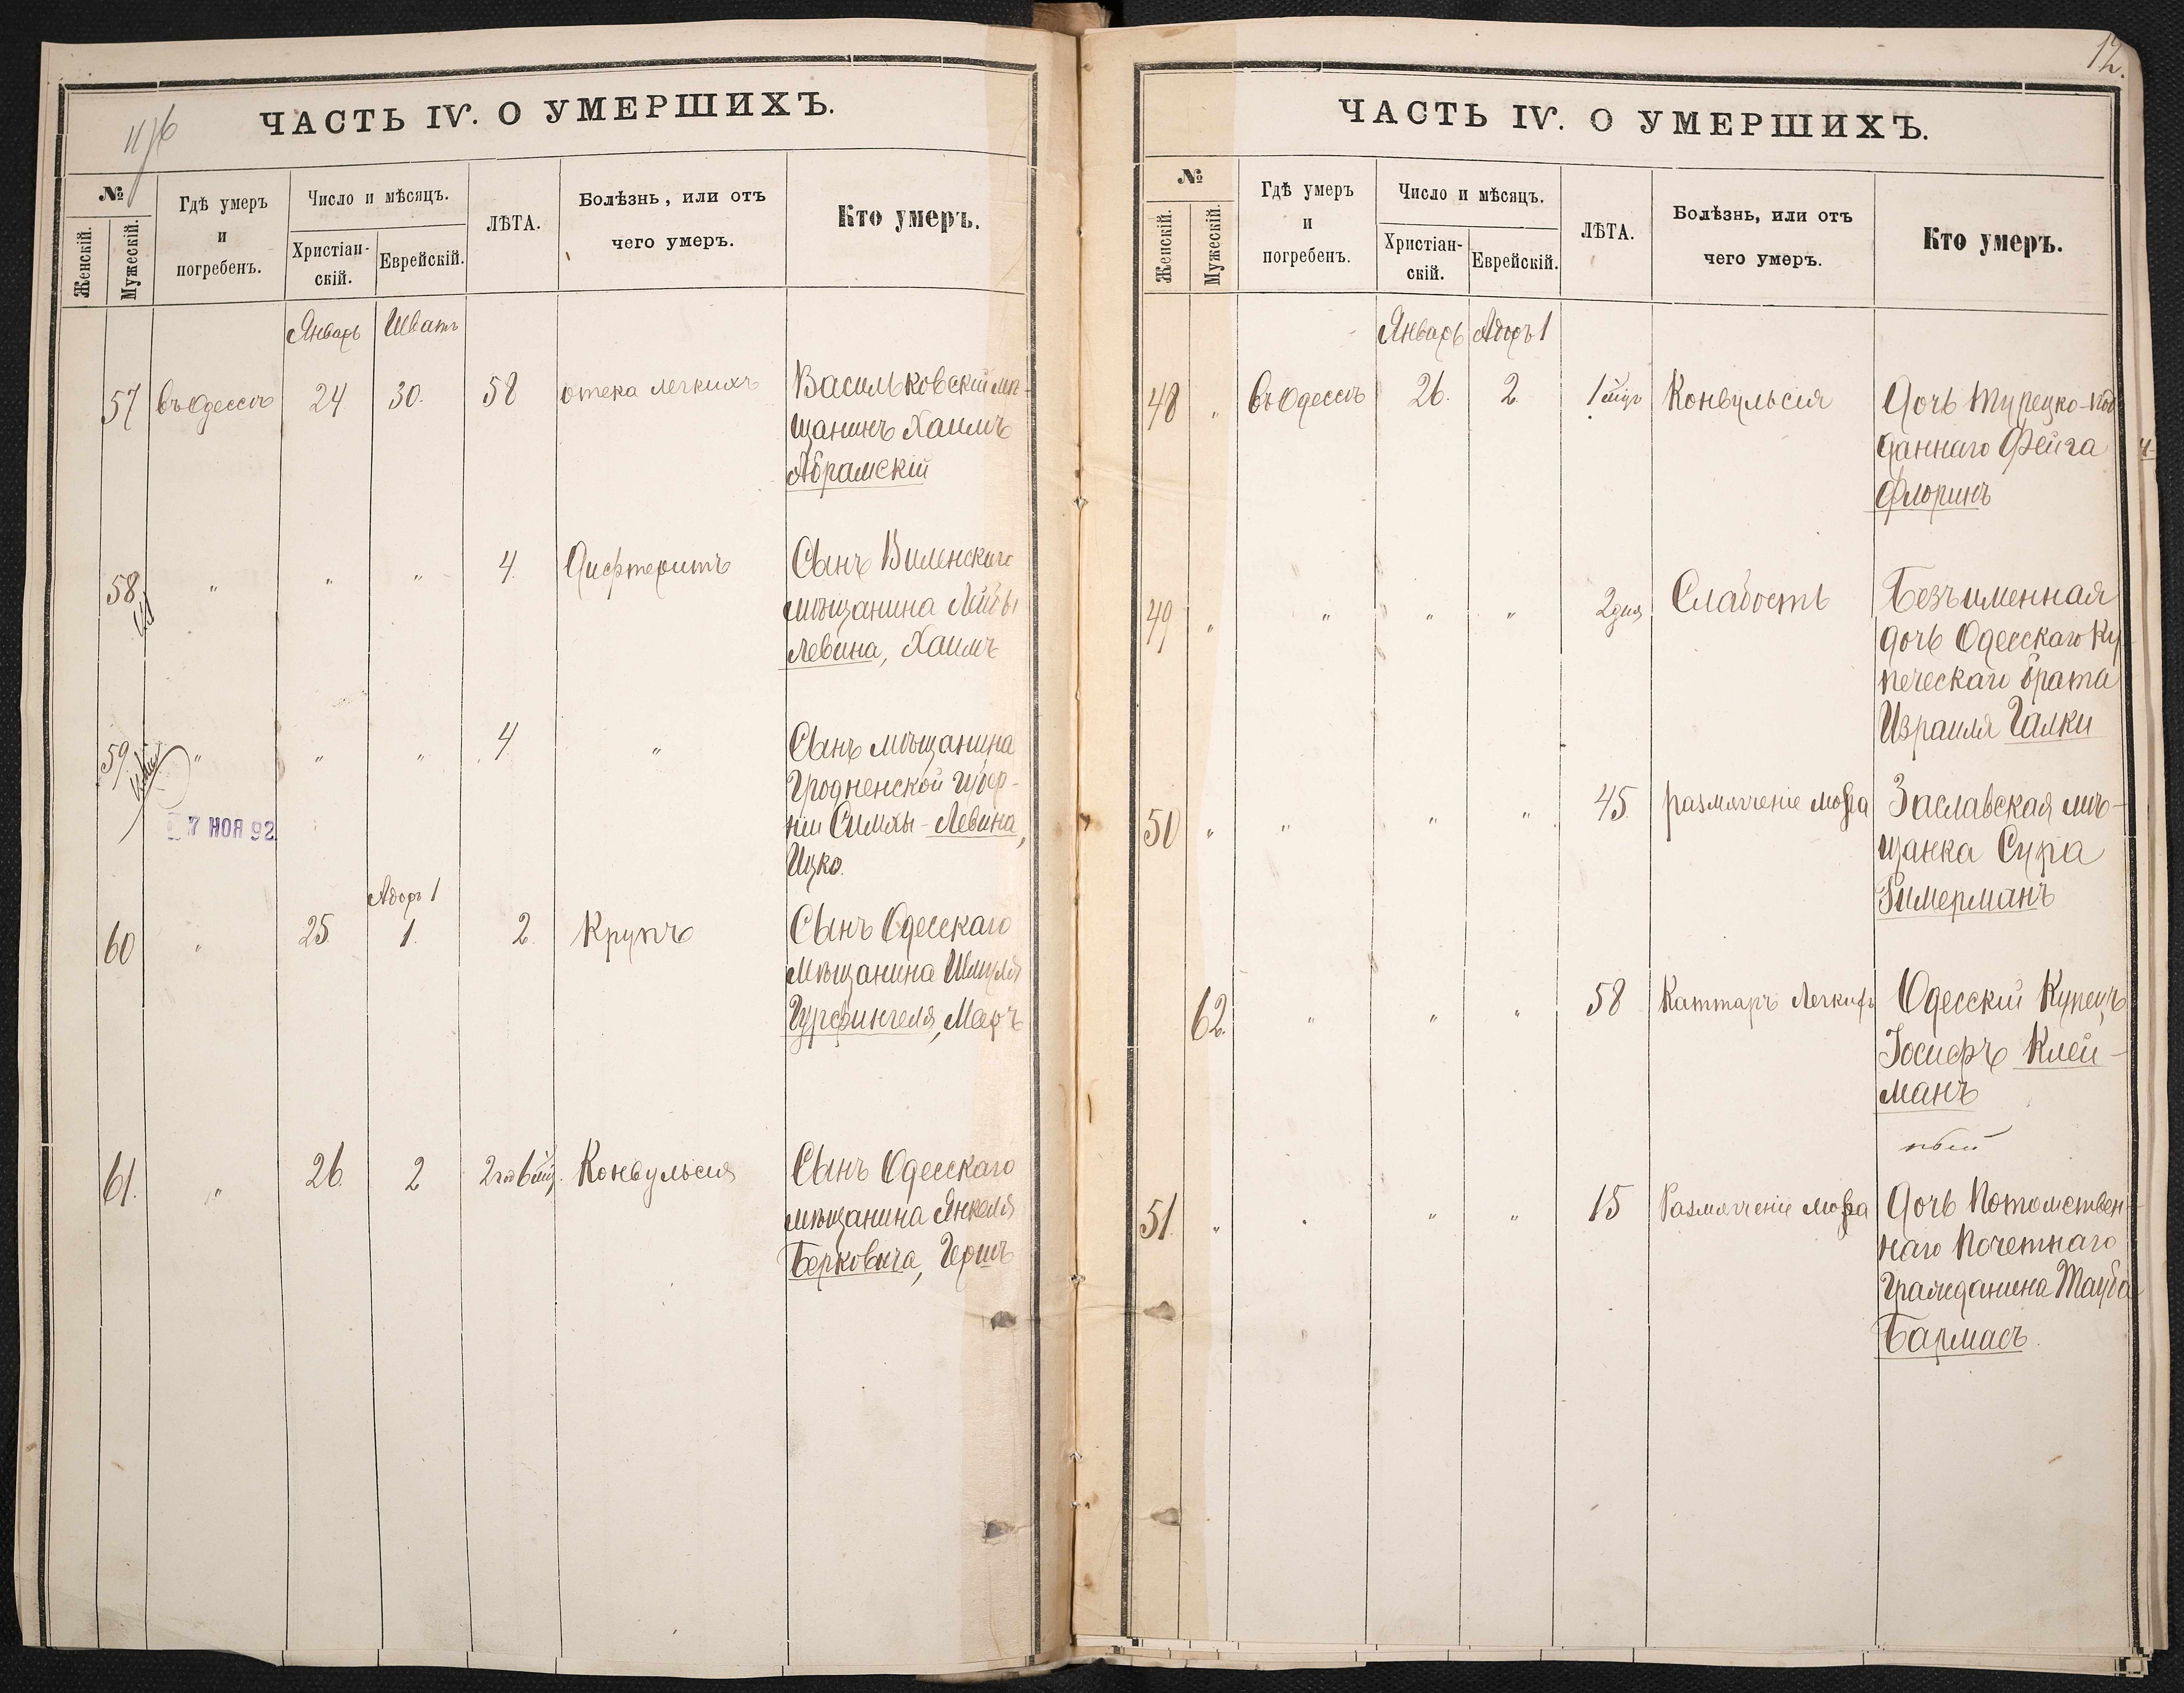 ЧАСТЬ IV. О УМЕРШИХЪ.
№
Женскій.
Мужескій.
Гдѣ умеръ
и
погребенъ.
Число и мѣсяцъ.
Христіан-
скій.
Еврейскій.
ЛѢТА.
Болѣзнь, или отъ
чего умеръ.
Кто умеръ.
Январь Шватъ
57 въ Одессѣ 24 30. 58 отека легкихъ Васильковскій мѣ-
щанинъ Хаимъ
Абрамскій
58 " " " 4. Дифтеритъ Сынъ Виленскаго
мѣщанина Лейбы
Левина, Хаимъ
59 " " " 4 " Сынъ мѣщанина
Гродненской Губер-
ніи Симхи - Левина,
Ицко.
7 НОЯ 92
Адоръ 1
60 " 25 1. 2. Крупъ Сынъ Одесскаго
мѣщанина Шмуля
Гурфингеля, Маръ
61. " 26. 2 2 год 6 мѣц. Конвульсія Сынъ Одесскаго
мѣщанина Янкеля
Берковича, Гершъ
12.
ЧАСТЬ IV. О УМЕРШИХЪ.
№
Женскій.
Мужескій.
Гдѣ умеръ
и
погребенъ.
Число и мѣсяцъ.
Христіан-
скій.
Еврейскій.
ЛѢТА.
Болѣзнь, или отъ
чего умеръ.
Кто умеръ.
Январь Адоръ 1
48 " въ Одессѣ 26. 2 1 мѣц Конвульсія Дочь турецко-под
даннаго Фейга
Флоринъ
49 " " " " 2 дня Слабость Безъименная
дочь Одесскаго Ку
печескаго брата
Израиля Галки
50 " " " " 45. размягченіе мозга Заславская мѣ-
щанка Сура
Гимерманъ
62. " " " 58 Каттаръ Легкихъ Одесскій Купецъ
Іосифъ Клей-
манъ
51. " " " " 15 Размягченіе мозга Дочь Потомствен-
наго Почетнаго
Гражданина Тауба
Бармасъ.